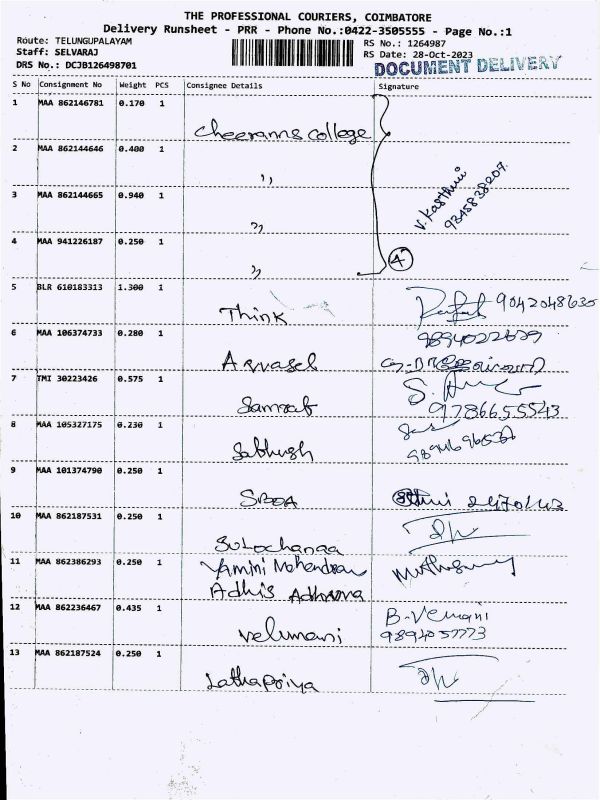 THE PROFESSIONAL COURIERS, COIMBATORE
Delivery Runsheet - PRR - Phone No.:0422-3505555 - Page No.:1
Route: TELUNGUPALAYAM
RS No.: 1264987
Staff: SELVARAJ
RS Date: 28-Oct-2023
DRS No.: DCJB126498701
DOCUMENT DELIVERY
S No Consignment No Weight PCS Consignee Details Signature
1 MAA 862146781 0.170 1
Cheeranns College
2 MAA 862144646 0.400 1
,,
3 MAA 862144665 0.940 1
,,
V. Kasthuri
9845838209.
4 MAA 941226187 0.250 1
,,
4
5 BLR 610183313 1.300 1
Think 9042048630
6 MAA 106374733 0.280 1
9894022629
7 TMI 30223426 0.575 1
Samrat
9786655543
8 MAA 105327175 0.230 1
9 MAA 101374790 0.250 1
SBOA
10 MAA 862187531 0.250 1
Sulochanaa
11 MAA 862386293 0.250 1
Yamini Mohendran
Adhis
12 MAA 862236467 0.435 1
Velumani
B. Vemani
13 MAA 862187524 0.250 1
Lathapriya